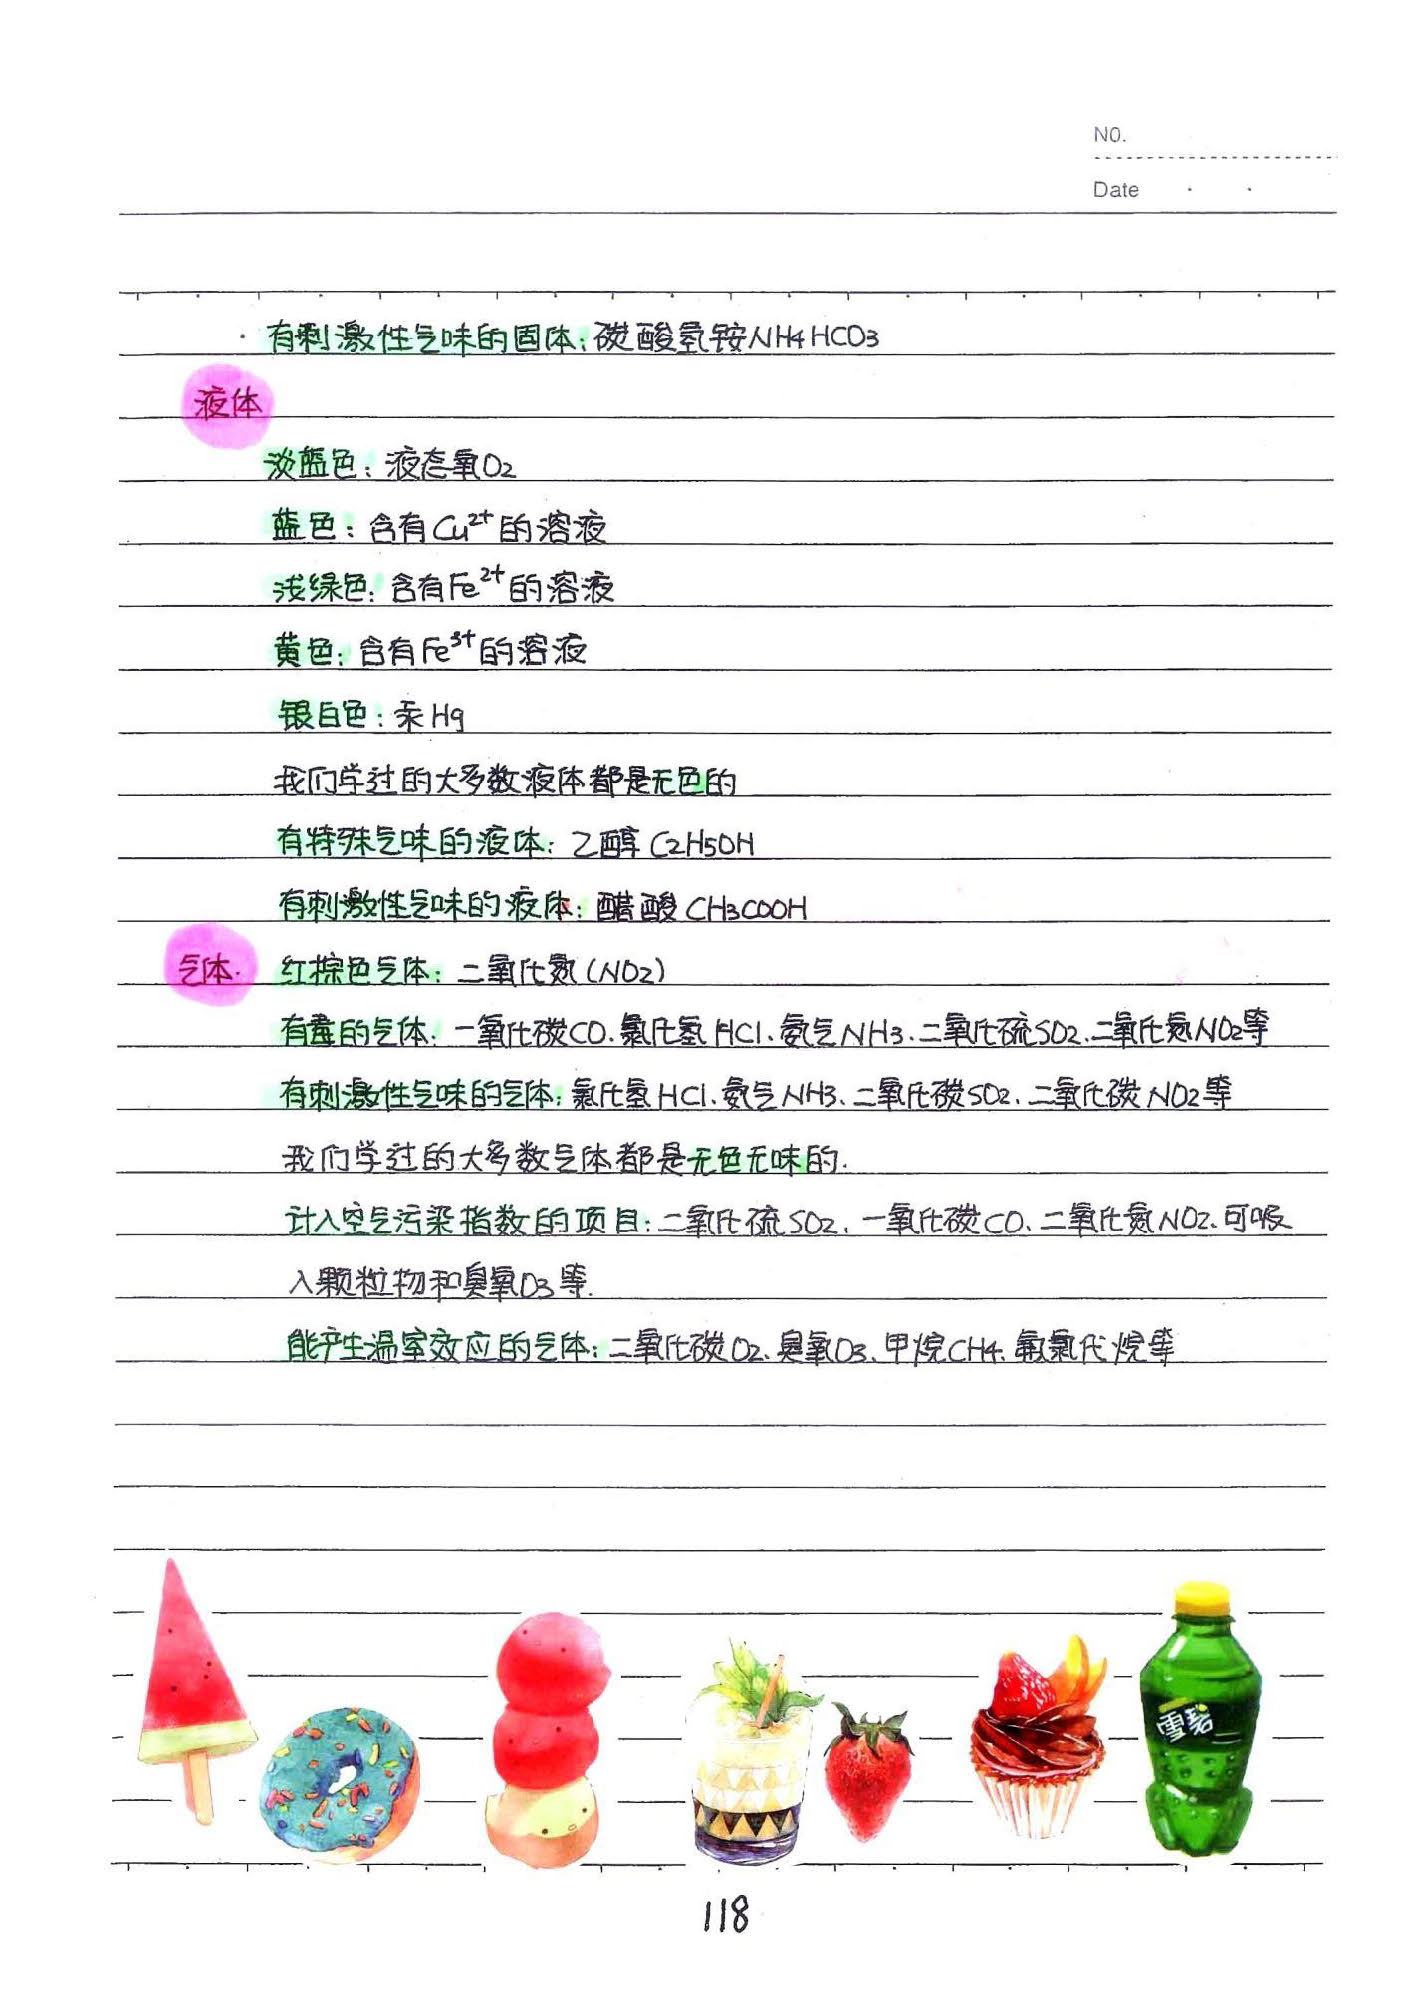 NO.
Date
·有刺激性气味的固体:碳酸氢铵NH4HCO3
液体
淡蓝色:液态氧O2
蓝色:含有Cu²⁺的溶液
浅绿色:含有Fe²⁺的溶液
黄色:含有Fe³⁺的溶液
银白色:汞Hg
我们学过的大多数液体都是无色的
有特殊气味的液体:乙醇C2H5OH
有刺激性气味的液体:醋酸CH3COOH
气体· 红棕色气体:二氧化氮(NO2)
有毒的气体:一氧化碳CO、氯化氢HCl、氨气NH3、二氧化硫SO2、二氧化氮NO2等
有刺激性气味的气体:氯化氢HCl、氨气NH3、二氧化碳SO2、二氧化碳NO2等
我们学过的大多数气体都是无色无味的.
计入空气污染指数的项目:二氧化硫SO2、一氧化碳CO、二氧化氮NO2、可吸
入颗粒物和臭氧O3等.
能产生温室效应的气体:二氧化碳O2、臭氧O3、甲烷CH4、氟氯代烷等
雪碧
118